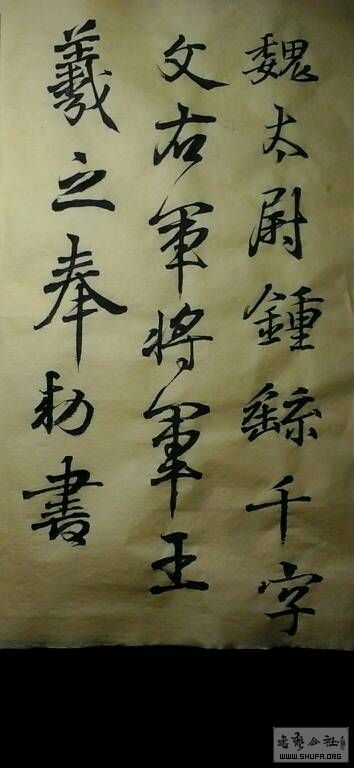 魏太尉鍾繇千字
文右軍將軍王
羲之奉勑書
書藝公社
WWW.SHUFA.ORG